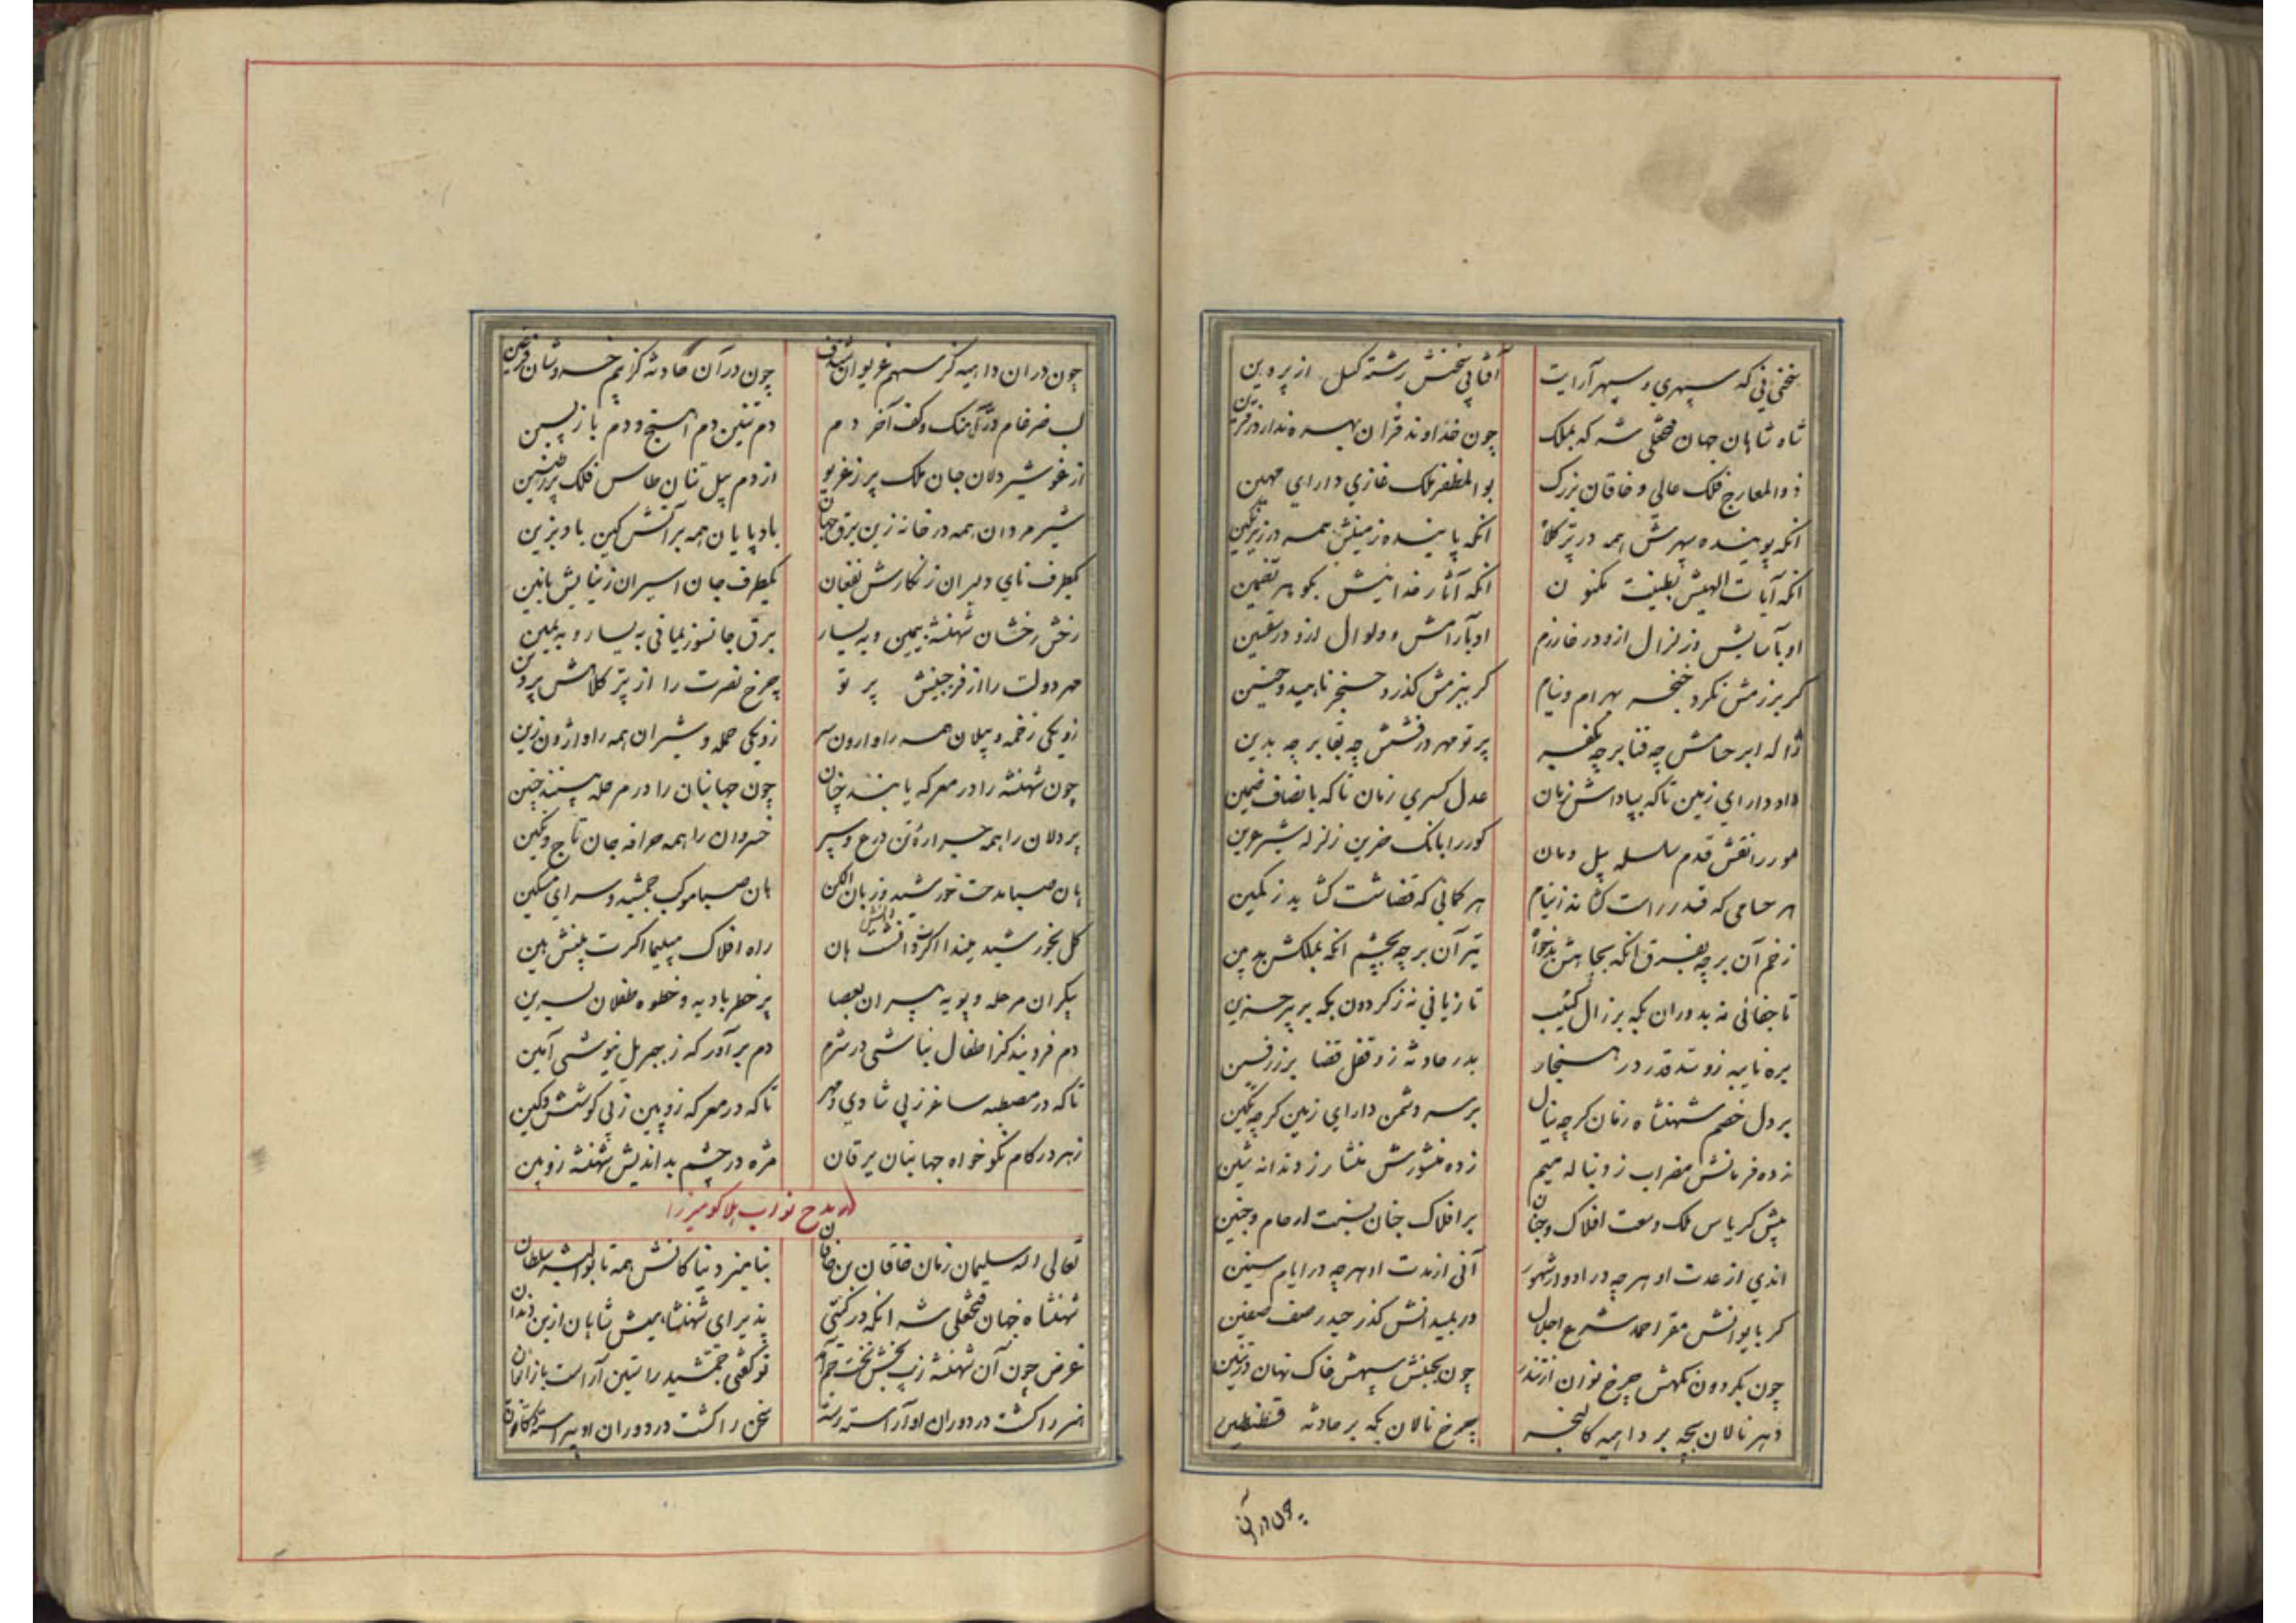 سختی نی که سپهری و سپهر آرایت آفتابی سخنش رشته کسل از پروین
شاه شاهان جهان فتحعلی شه که بملک چون خداوند قران بهره ندارد ز قرین
ذوالمعارج فلک عالی و خاقان بزرک بوالمظفر ملک غازی دارای مهین
انکه پوینده سپهرش همه در تیر کلاه انکه پاینده زمینش همه در زیر نکین
انکه آیات الهیش بطینت مکنون انکه آثار خدائیش بکوهر تضمین
او بآسایش و زلزال ازو در خارزم او بآرامش و ولوال ازو در سقسین
کر برزمش نکرد خنجر بهرام و نیام کر ببزمش کذرد حنجر ناهید و حنین
ژاله ابر حسامش چه فنا بر چه بکفر پرتو مهر درفشش چه بقا بر چه بدین
داد دارای زمین تا که بپاداش زمان عدل کسری زمان تا که بانصاف ضمین
مور را نقش قدم سلسله پیل دمان کور را بانک حزین زلزله شیر عرین
هر حسامی که قدر راست کشاند ز نیام هر کمانی که قضا شست کشاید ز کمین
زخم آن بر چه بفرق انکه بجاهش بدخواه تیر آن بر چه بچشم انکه بملکش بدبین
تا جفائی نه بدوران بکه بر زال کئیب تا زیانی نه ز کردون بکه بر پیر حزین
بدر حادثه زو قفل قضا بر زرفین
بر دل خصم شهنشاه زمان کرچه ینال بر سر دشمن دارای زمین کرچه تکین
زده فرمانش مضراب ز دنباله میم زده منشورش منشار ز دندانه شین
پیش کریاس ملک وسعت افلاک و جنان بر افلاک جنان نسبت ارحام و جنین
اندی از عدت او هر چه در ادوار شهور آنی از مدت او هر چه در ایام سنین
کر بایوانش مقر احمد شرع اجلال ور بمیدانش کذر حیدر صف صفین
چون بکردون نکهش چرخ نوان از تندر چون بجنبش سپهش خاک نهان در تنین
دهر نالان بچه بر داهیه کالنجر چرخ نالان بکه بر حادثه قسطنطین
چون در آن
چون در ان داهیه کز سهم غریوان شدف چون در آن حادثه کز بیم خروشان
لب ضرغام و کف آخر دم دم تنین دم اسنج و دم باز پسین
از غو شیردلان جان ملک پر ز غریو از دم پیل تنان طاس فلک پر ز طنین
شیر مردان همه در خانه زین برق جهان باد پایان همه بر آتش کین باد بزین
یکطرف نای دلیران ز نکارش بفغان یکطرف جان اسیران ز نیایش بانین
رخش رخشان شهنشه بیمین و به یسار برق جانسوز یمانی به یسار و به یمین
مهر دولت را از فر جبینش پرتو چرخ نصرت را از تیر کلاهش پروین
زو یکی زخمه و پیلان همه را وارون سر زو یکی حمله و شیران همه را واژون زین
چون شهنشه را در معرکه یابند چنان چون جهانبان را در مرحله بینند چنین
پر دلان را همه جراره تن درع و سپر خسروان را همه حرافه جان تاج و نکین
هان صبا مدحت خورشید و زبان الکن هان صبا موکب جمشید و سرای مسکین
کل بخورشید میندا اکرت دانش هان راه افلاک مپیما اکرت بینش هین
پیکران مرحله و پویه پیران بعصا پر خطر بادیه و خطوه طفلان بسرین
دم فرو بند کز اطفال نباشی در شرم دم بر آور که ز جبریل نیوشی آمین
تا که در مصطبه ساغر ز پی شادی و مهر تا که در معرکه زوبین ز پی کوشش و کین
زهر در کام نکو خواه جهانبان یرقان مژه در چشم بد اندیش شهنشه زوبین
در مدح نواب هلاکو میرزا
تعالی اله سلیمان زمان خاقان بن خاقان نیا میر و نیاکانش همه تا بوالبشر سلطان
شهنشاه جهان فتحعلی شه انکه در کیتی پذیرای شهنشاهیش شاهان از بن دندان
غرض چون آن شهنشه زیب بخش تخت جم آمد تو کفتی جمشید را تبین آراست باز ایوان
هنر را کشت در دوران او آراسته رسته سخن را کشت در دوران او پیراسته دکان